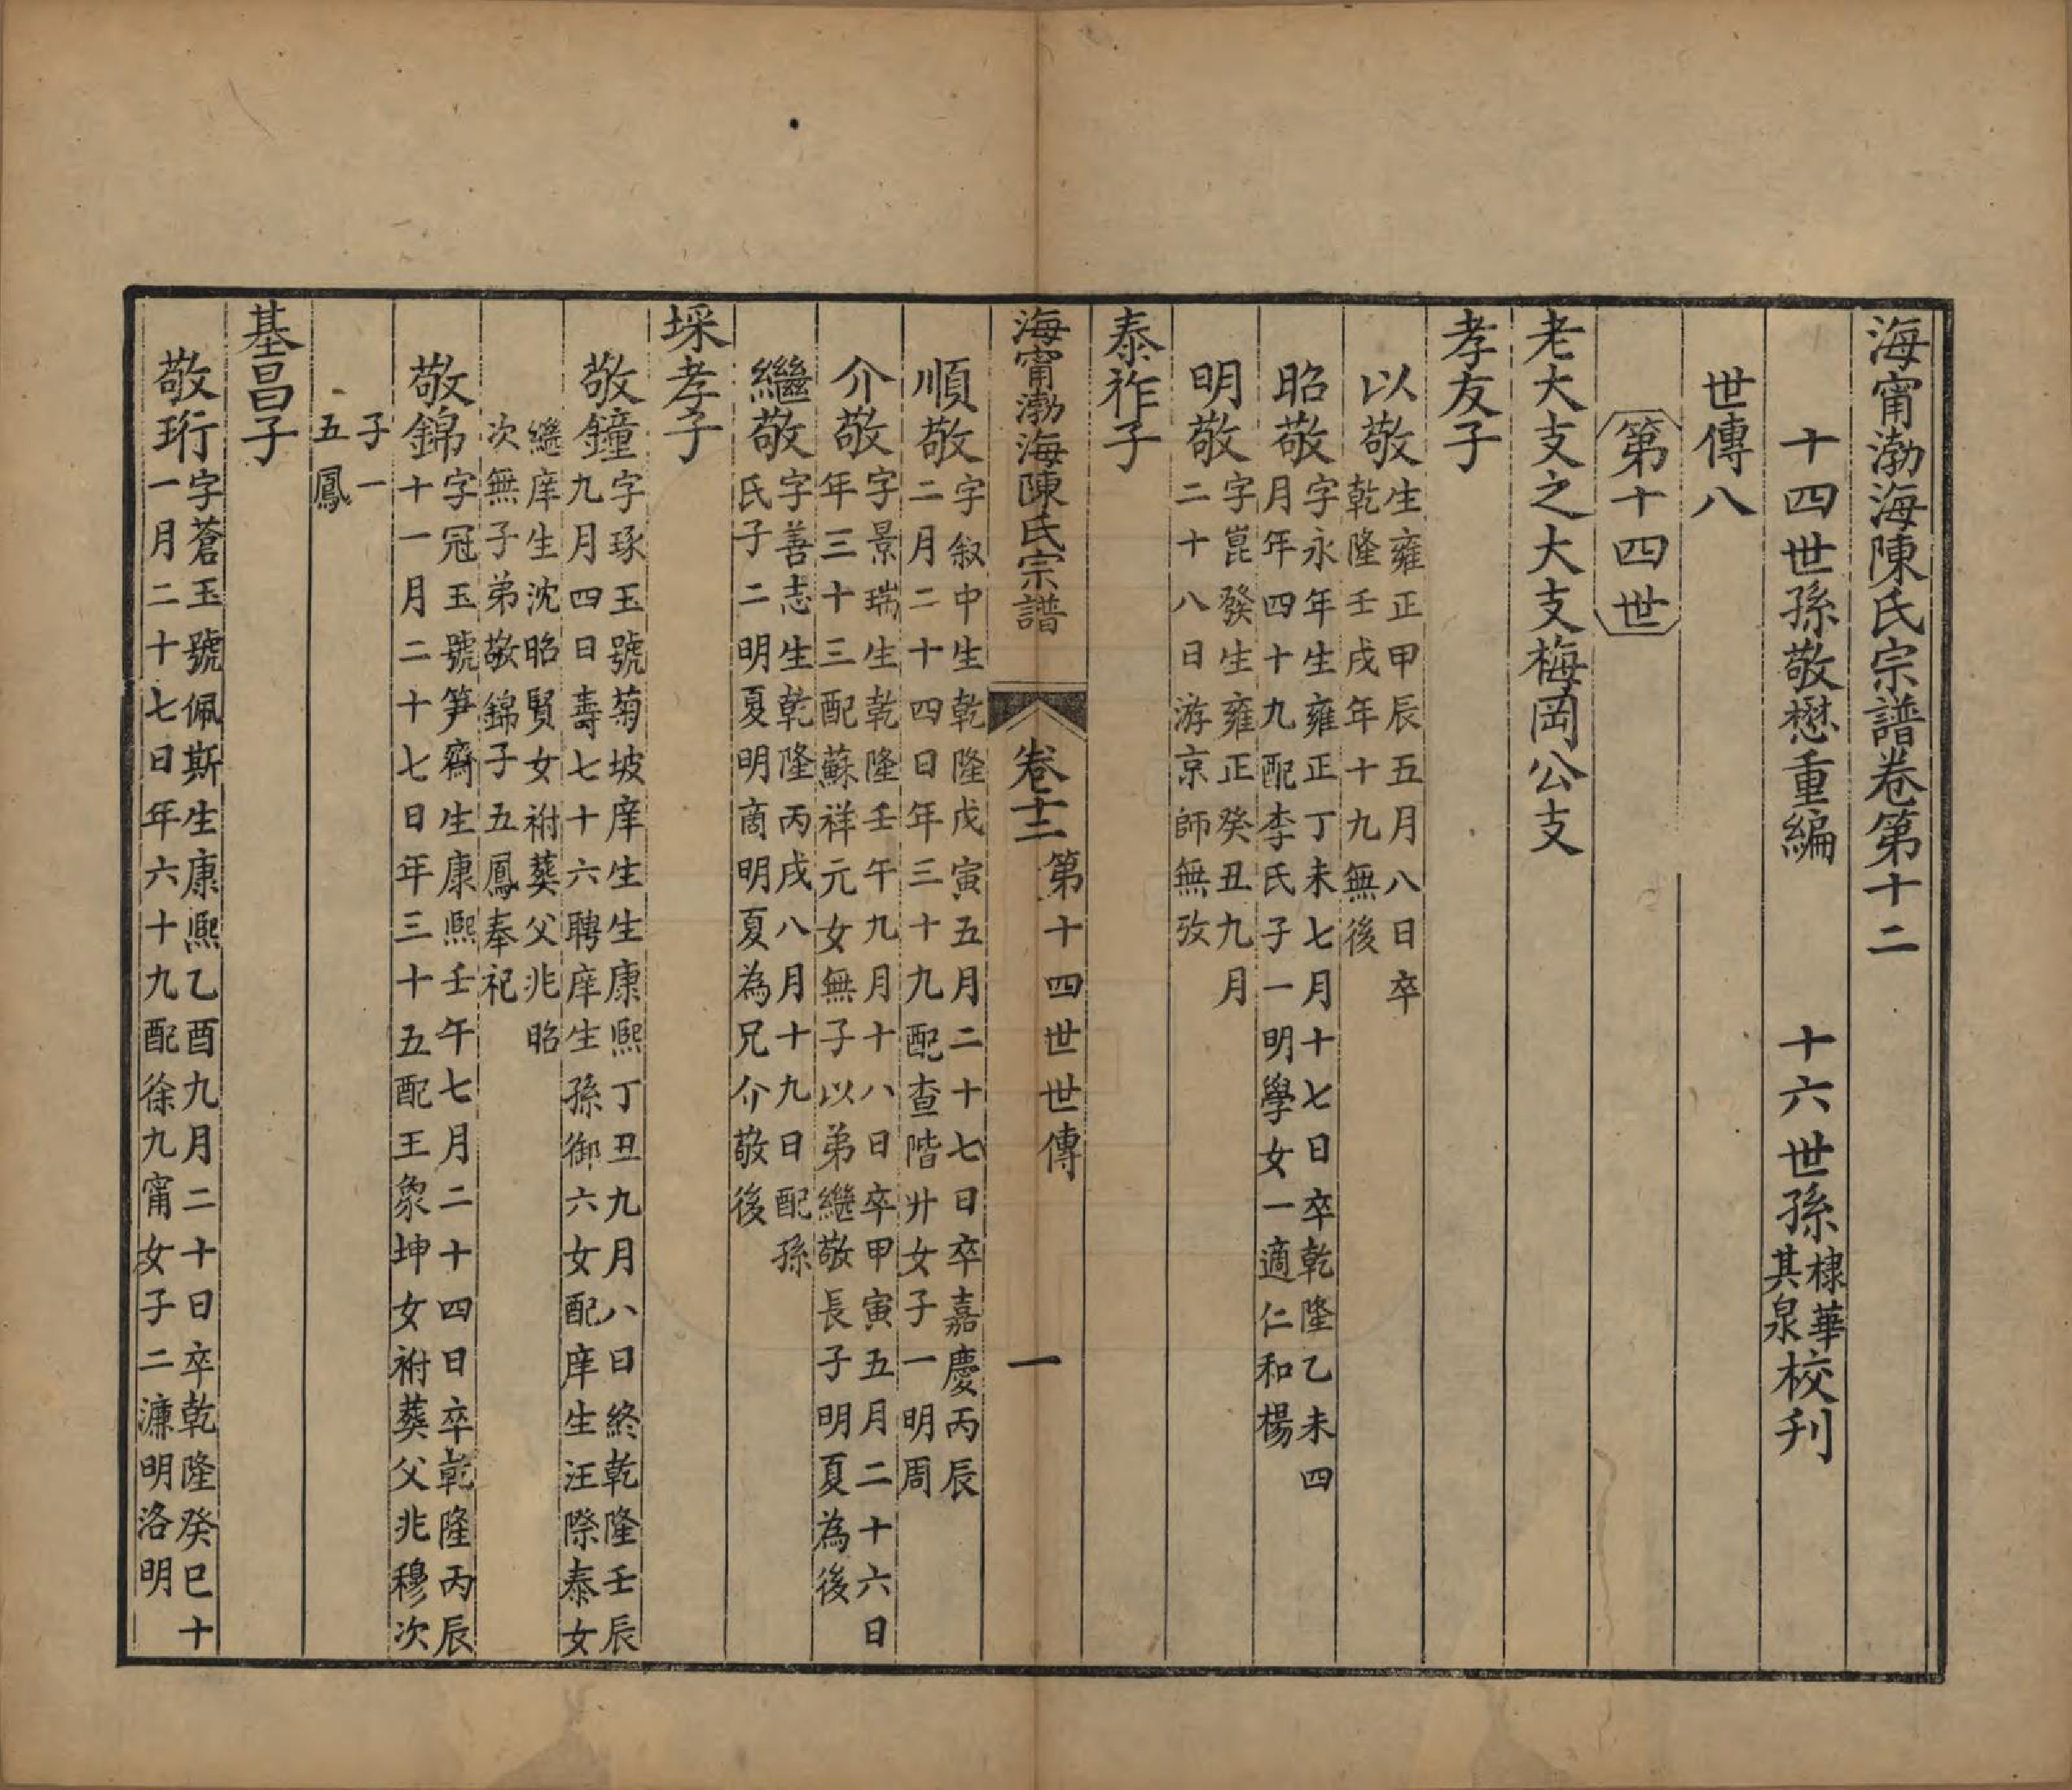 海甯渤海陳氏宗譜卷第十二
十四世孫敬懋重編　十六世孫棣華其泉校刋
世傳八
第十四世
老大支之大支梅岡公支
孝友子
以敬生雍正甲辰五月八日卒
乾隆壬戌年十九無後
昭敬字永年生雍正丁未七月十七日卒乾隆乙未四
月年四十九配李氏子一明學女一適仁和楊
明敬字崑發生雍正癸丑九月
二十八日游京師無攷
泰祚子
海甯渤海陳氏宗譜　卷十二　第十四世世傳　一
順敬字叙中生乾隆戊寅五月二十七日卒嘉慶丙辰
二月二十四日年三十九配查階升女子一明周
介敬字景瑞生乾隆壬午九月十八日卒甲寅五月二十六日
年三十三配蘇祥元女無子以弟繼敬長子明夏為後
繼敬字善志生乾隆丙戌八月十九日配孫
氏子二明夏明商明夏為兄介敬後
埰孝子
敬鐘字琢玉號菊坡庠生生康熙丁丑九月八日終乾隆壬辰
九月四日壽七十六聘庠生孫御六女配庠生汪際泰女
繼庠生沈昭賢女祔葬父兆昭
次無子弟敬錦子五鳳奉祀
敬錦字冠玉號笋齋生康熙壬午七月二十四日卒乾隆丙辰
十一月二十七日年三十五配王象坤女祔葬父兆穆次
子一
五鳳
基昌子
敬珩字蒼玉號佩斯生康熙乙酉九月二十日卒乾隆癸巳十
一月二十七日年六十九配徐九甯女子二濂明洛明